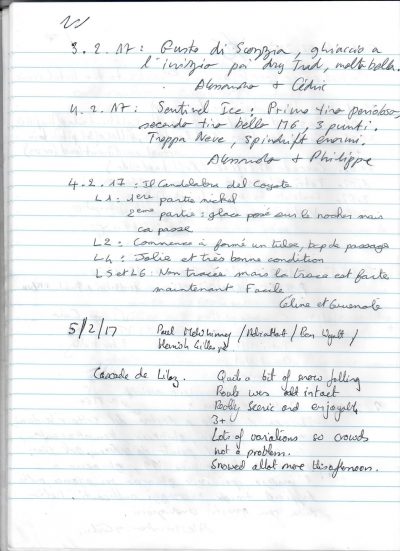 3.2.17: Gusto di Scozzia, ghiaccio a
l'inizio poi dry Trad, molto bella.
Alessandro + Cédric
4.2.17: Sentinel Ice: Primo tiro pericoloso,
secondo tiro bello M6, 3 punti.
Troppa Neve, spindrift enormi.
Alessandro + Philippe
4.2.17: Il Candelabro del Coyote
L1: 1ère partie nickel
2ème partie: glace posé sur le rocher mais
ca passe
L2: Commence à formé un tube, bcp de passage
L4: Jolie et très bonne condition
L5 et L6: Non tracée mais la trace est faite
maintenant Facile
Céline et Gwenole
5/2/17 Paul
Hamish Gillespie
Cascade de Lillaz. Quite a bit of snow falling
Route was still intact
Really scenic and enjoyable
3+
Lots of variations so crowds
not a problem.
Snowed allot more this afternoon.